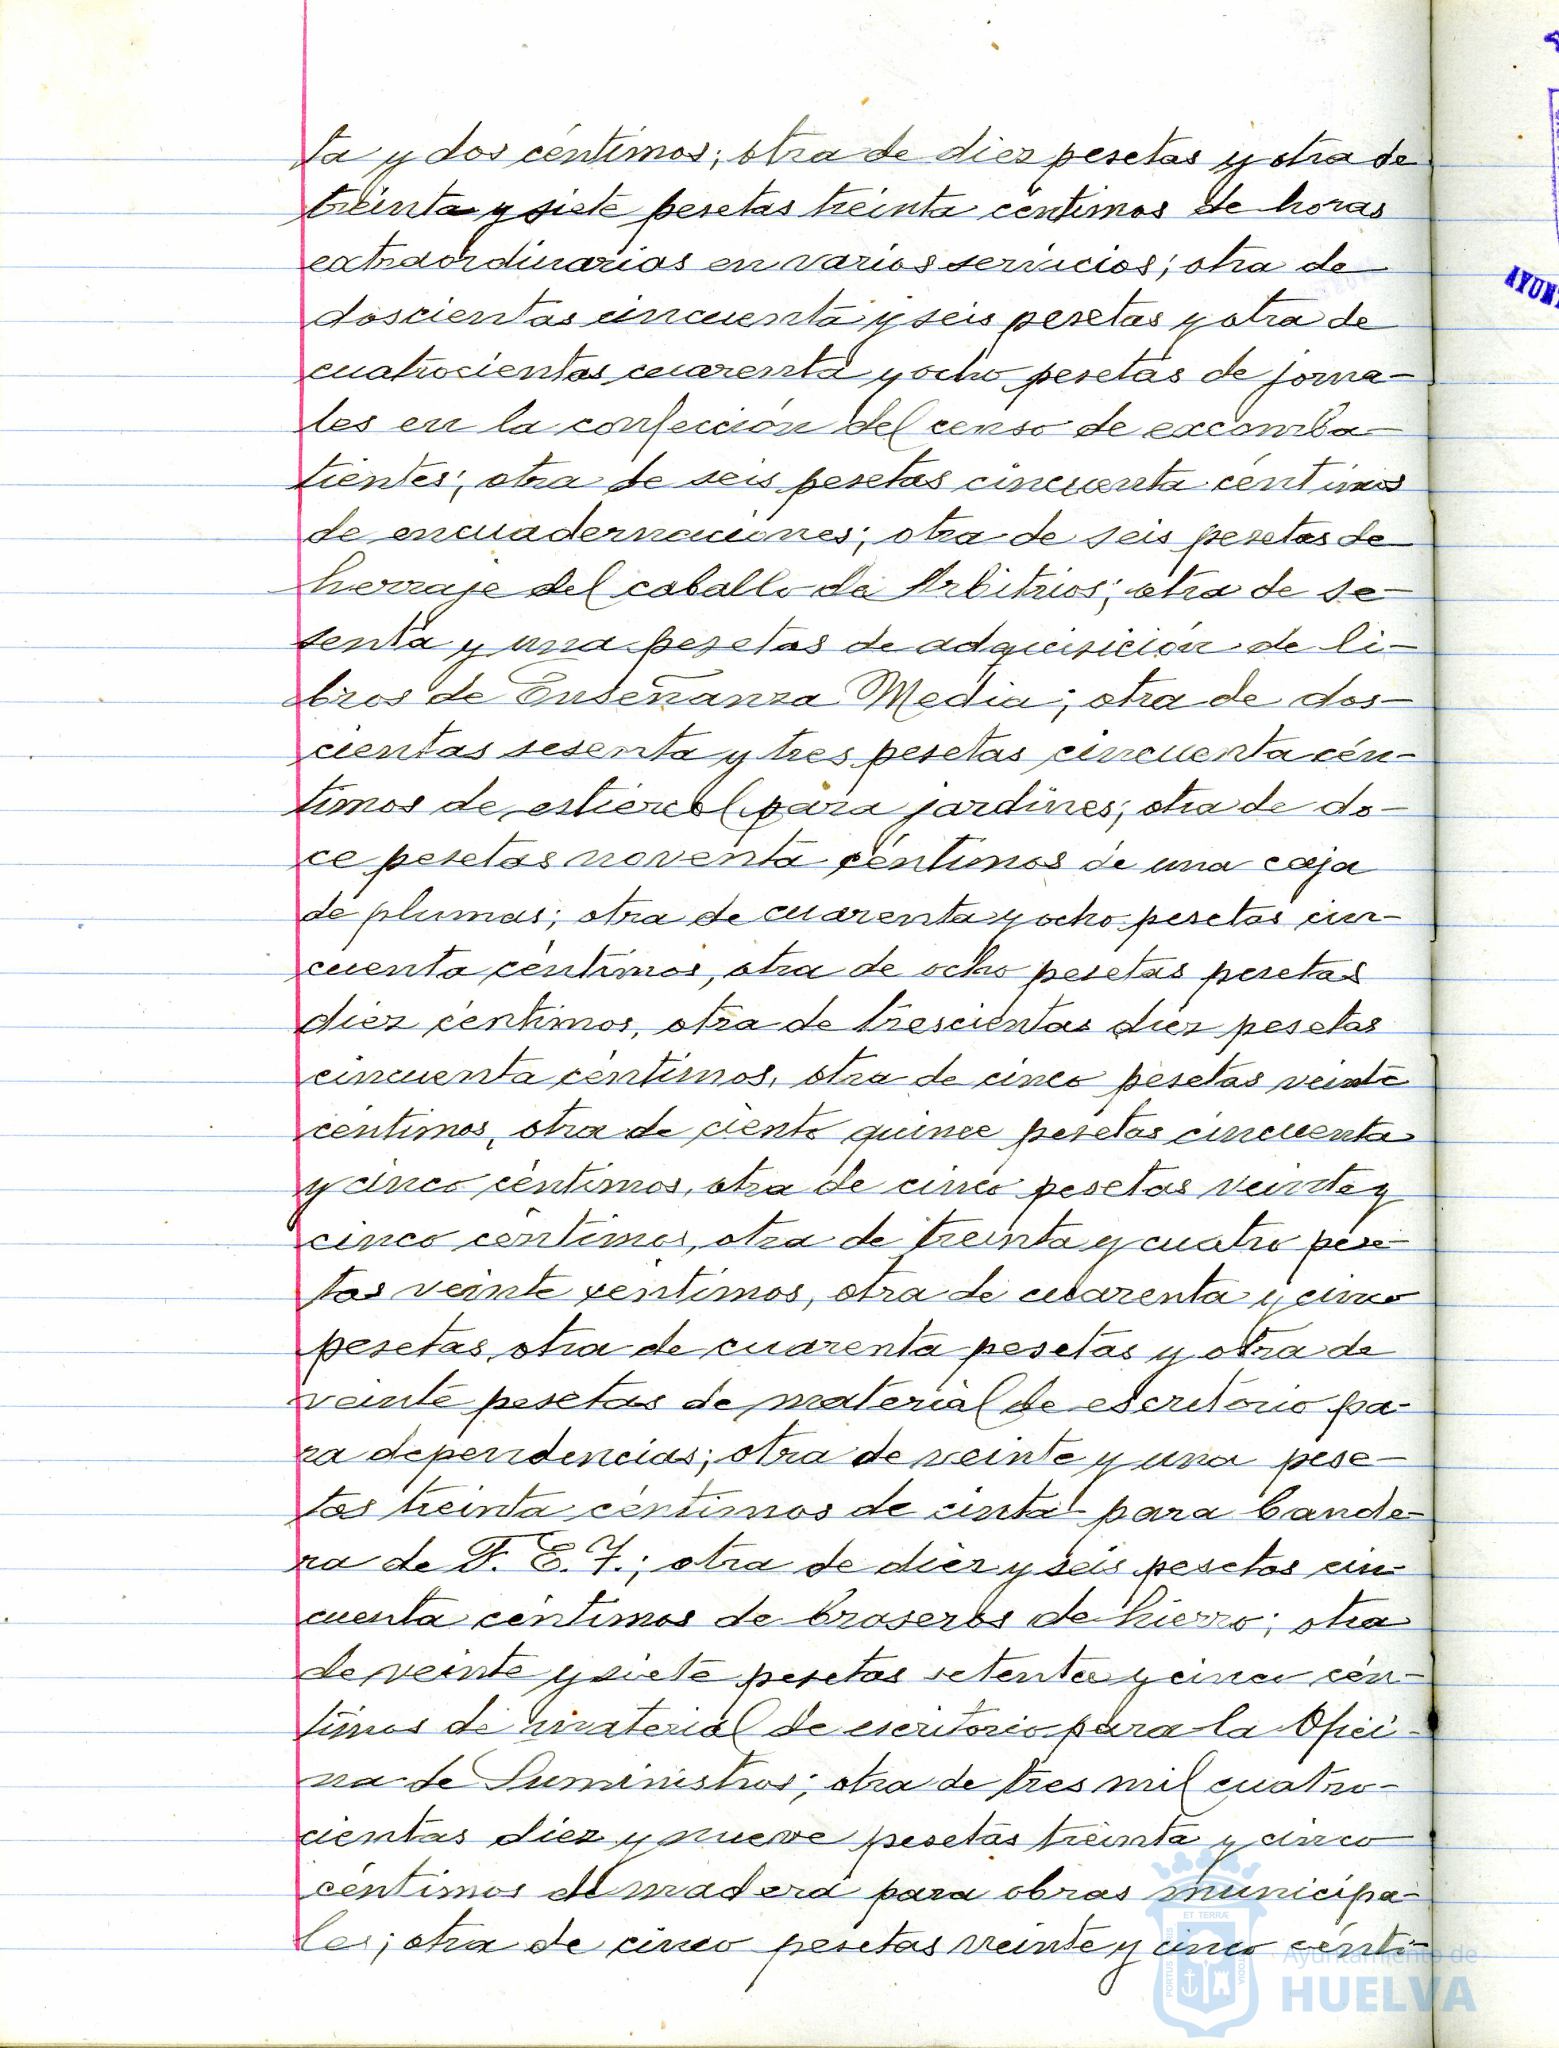 ta y dos céntimos; otra de diez pesetas y otra de
treinta y siete pesetas treinta céntimos de horas
extraordinarias en varios servicios; otra de
doscientas cincuenta y seis pesetas y otra de
cuatrocientas cuarenta y ocho pesetas de jorna-
les en la confección del censo de excomba-
tientes; otra de seis pesetas cincuenta céntimos
de encuadernaciones; otra de seis pesetas de
herraje del caballo de Arbitrios; otra de se-
senta y una pesetas de adquisición de li-
bros de Enseñanza Media; otra de dos-
cientas sesenta y tres pesetas cincuenta cén-
timos de estiercol para jardines; otra de do-
ce pesetas noventa céntimos de una caja
de plumas; otra de cuarenta y ocho pesetas cin-
cuenta céntimos, otra de ocho pesetas pesetas
diez céntimos, otra de trescientas diez pesetas
cincuenta céntimos, otra de cinco pesetas veinte
céntimos, otra de ciento quince pesetas cincuenta
y cinco céntimos, otra de cinco pesetas veinte y
cinco céntimos, otra de treinta y cuatro pese-
tas veinte céntimos, otra de cuarenta y cinco
pesetas, otra de cuarenta pesetas y otra de
veinte pesetas de material de escritorio pa-
ra dependencias; otra de veinte y una pese-
tas treinta céntimos de cinta para bande-
ra de F. E. T.; otra de diez y seis pesetas cin-
cuenta céntimos de braseros de hierro; otra
de veinte y siete pesetas setenta y cinco cén-
timos de material de escritorio para la Ofici-
na de Suministros; otra de tres mil cuatro-
cientas diez y nueve pesetas treinta y cinco
céntimos de madera para obras municipa-
les; otra de cinco pesetas veinte y cinco cénti-
AYUNT
PORTUS
ET TERRÆ
CUSTODIA
Ayuntamiento de
HUELVA